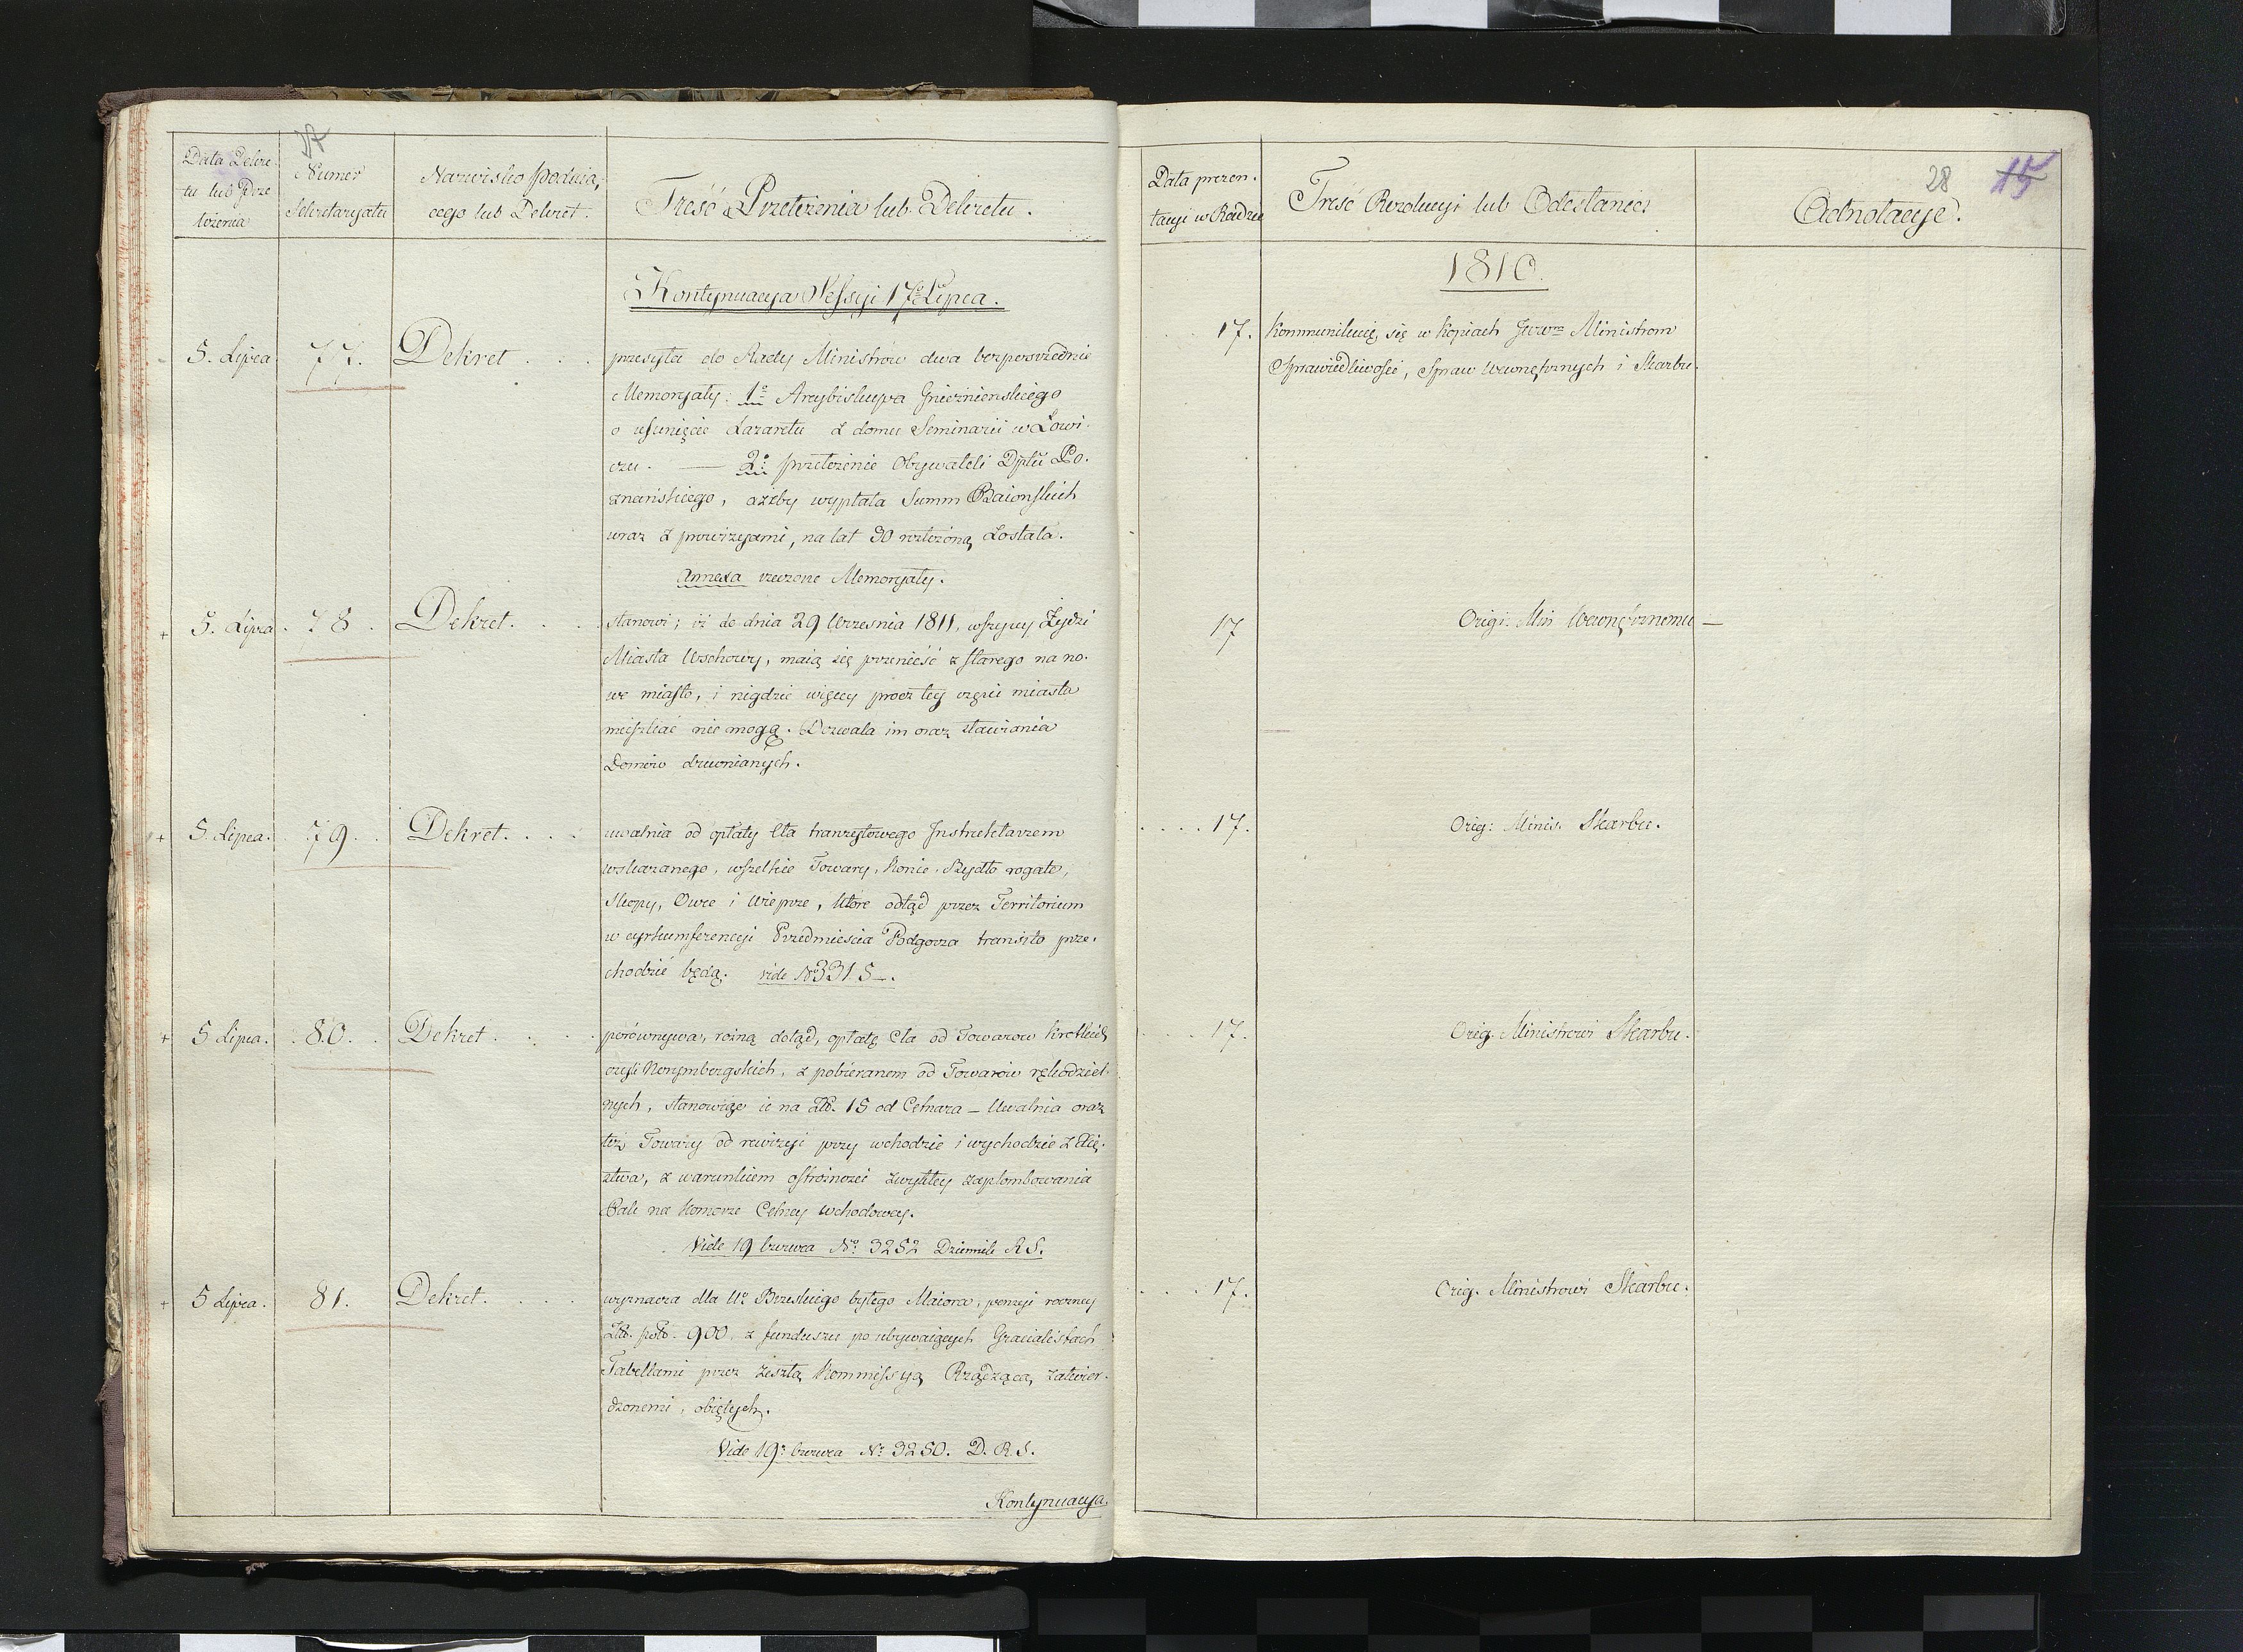 27
Data Dekre-
tu lub Prze
łożenia
Numer
Sekretaryatu
Nazwisko Podaią,
cego lub Dekret.
Treść Przełożenia lub Dekretu.
Kontynuacya Sessyi 17º Lipca.
5. Lipca 77. Dekret . . .
przesyła do Rady Ministrów dwa bezpośrzednie
Memoryały: 1º Arcybiskupa Gnieznienskiego
o usunięcie Lazaretu z domu Seminarii w Łowi-
czu. — 2º przełożenie Obywateli Dptu Po-
znańskiego, ażeby wypłata Summ Baionskich
wraz z prowizyami, na lat 30 rozłożoną została.
Annexa rzeczone Memoryały.
+ 5. Lipca . 78 . Dekret. . .
stanowi; iż do dnia 29 Września 1811, wszyscy Żydzi
Miasta Wschowy, maią się przenieść z starego na no-
we miasto, i nigdzie więcey procz tey części miasta
mieszkać nie mogą. Dozwala im oraz stawiania
Domów drewnianych.
+ 5. Lipca. . 79. . Dekret. . . .
uwalnia od opłaty Cła tranzytowego Instruktarzem
wskazanego, wszelkie Towary, Konie, Bydło rogate,
Skopy, Owce i Wieprze, które odtąd przez Territorium
w cyrkumferencyi Przedmieścia Podgorza transito prze-
chodzić będą. vide Nº 331 S—.
+ 5 Lipca. . 80. . Dekret . . . .
porównywa, rożną dotąd, opłatę Cła od Towarow krotkich
czyli Norymbergskich, z pobieranem od Towarów rękodziel-
nych, stanowiąc ie na Złł. 15 od Cetnara — Uwalnia oraz
też Towary od rewizyi przy wchodzie i wychodzie z Xię-
ztwa, z warunkiem ostrożności zwykłey zaplombowania
Pak na Komorze Celney wchodowey.
Vide 19 Czerwca Nº 3252 Dziennik R S.
+ 5 Lipca. 81. Dekret. . . .
wyznacza dla Uº Brzeskiego byłego Maiora, pensyi roczney
Złł. pols. 900, z funduszu po ubywaiących Gracialistach
Tabellami przez zeszłą Kommissyą Rządzącą, zatwier-
dzonemi, obiętych.
Vide 19º Czerwca Nº 3250. D. R. S.
Kontynuacya.
Data prezen-
tacyi w Radzie
Treść Rezolucyi lub Odesłanie
28 15
Adnotacye.
1810.
17. Kommunikuię się w Kopiach Jww Ministrom
Sprawiedliwości, Spraw Wewnętrznych i Skarbu.
17 Origi: Min Wewnętrznemu —
. . . . 17. Orig: Minis. Skarbu.
. . . 17. Orig. Ministrowi Skarbu.
. . . 17. Orig. Ministrowi Skarbu.